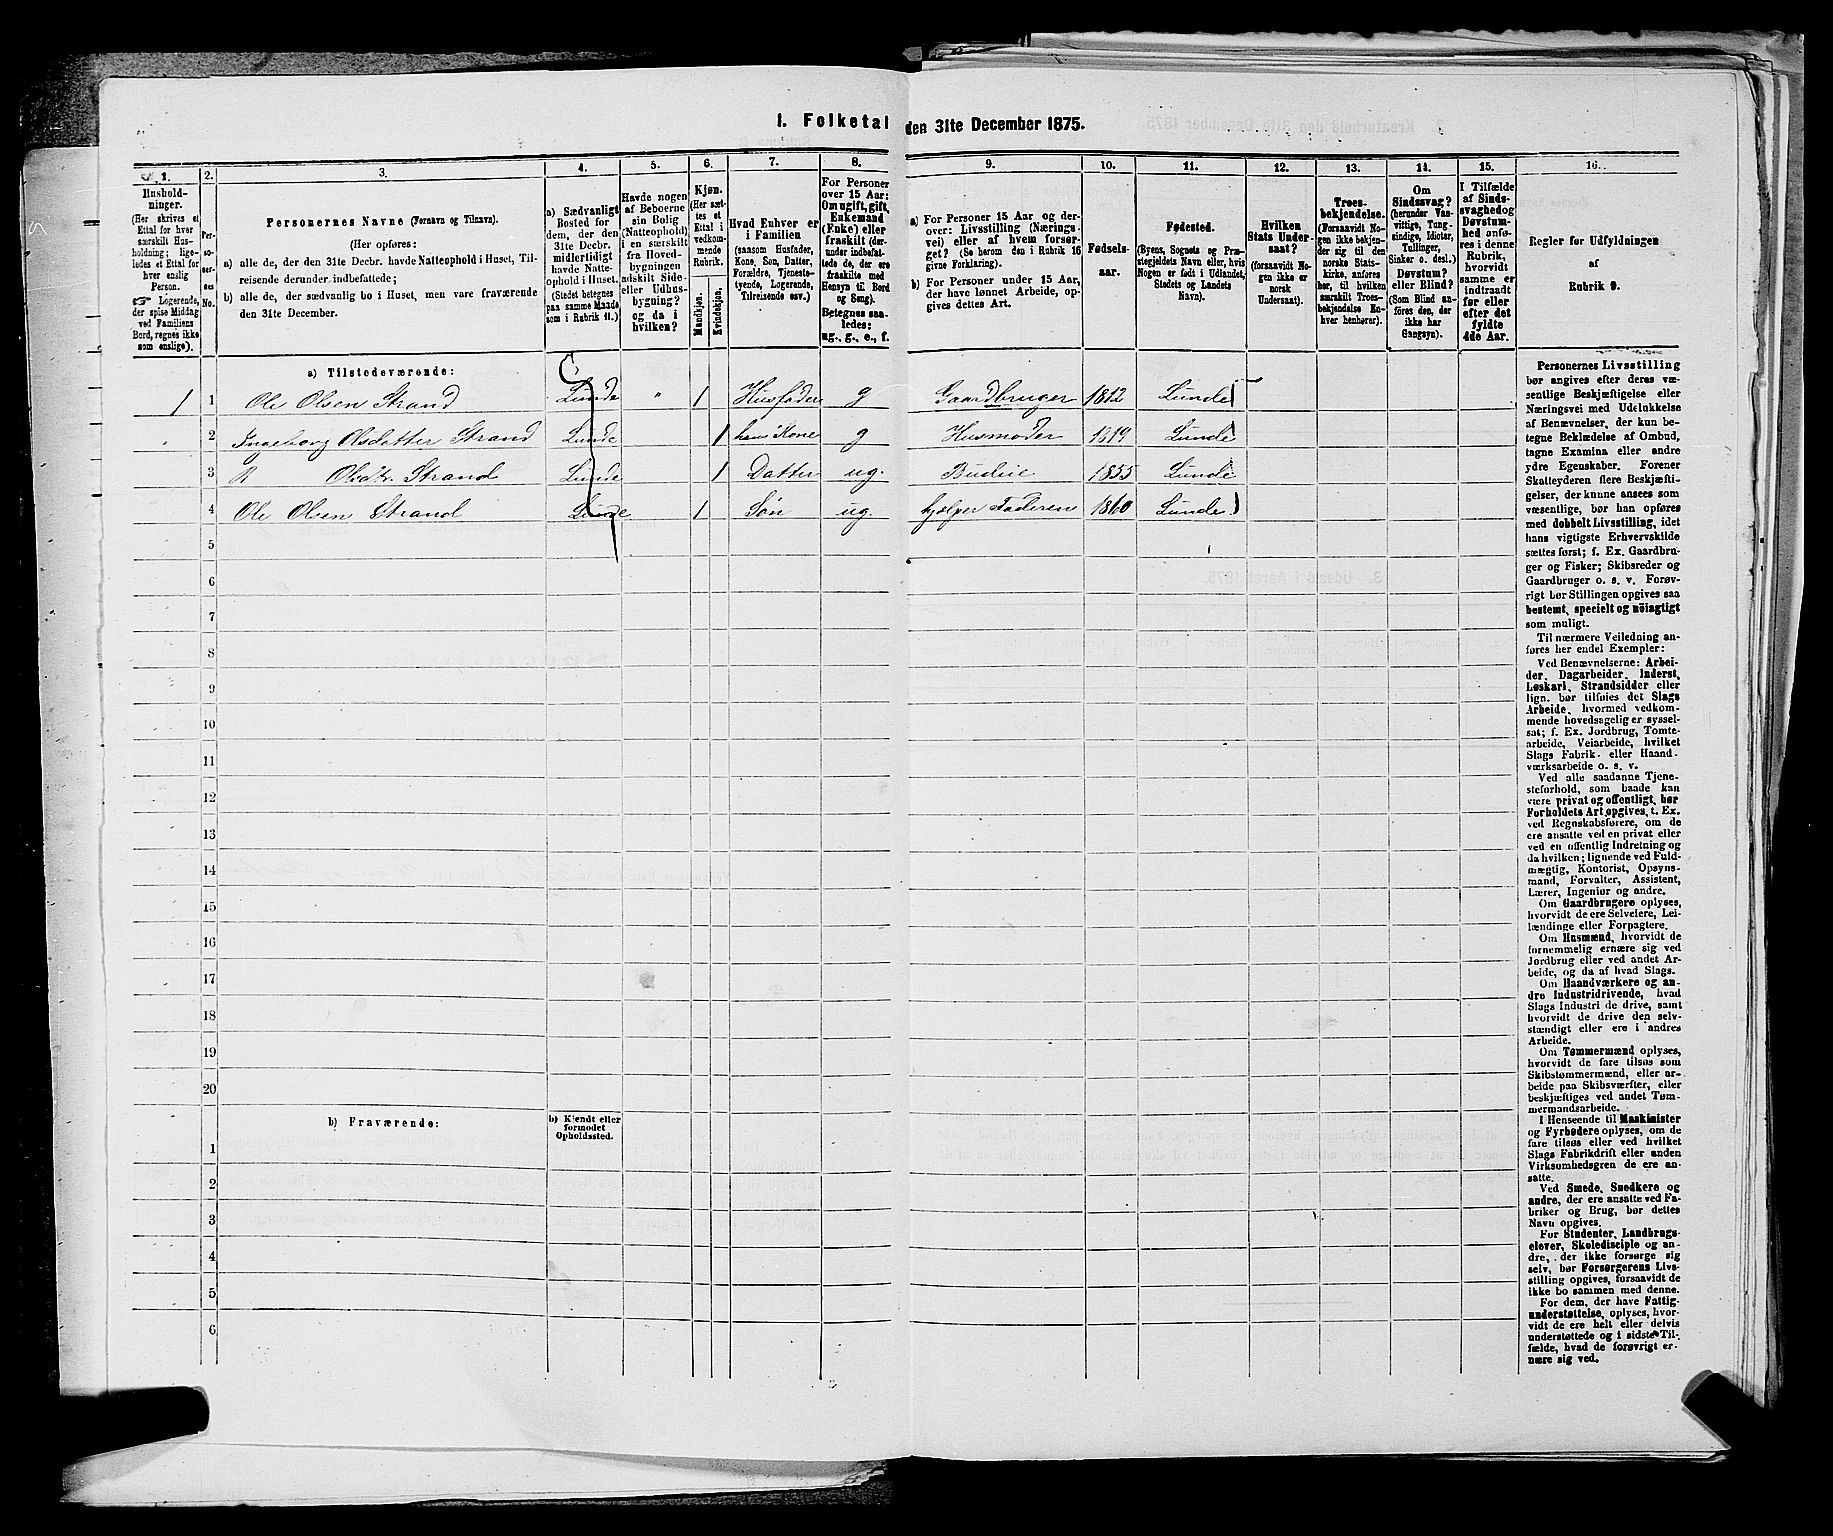 I. Folketal den 31te December 1875.
1.
Hushold-
ninger.
(Her skrives et
Ettal for hver
særskilt Hus-
holdning; lige-
ledes et Ettal for
hver enslig
Person.
☞ Logerende,
der spise Middag
ved Familiens
Bord, regnes ikke
som enslige).
2.
Per-
so-
ner-
nes
No.
3.
Personernes Navne (Fornavn og Tilnavn).
(Her opføres:
a) alle de, der den 31te Decbr. havde Natteophold i Huset, Til-
reisende derunder indbefattede;
b) alle de, der sædvanlig bo i Huset, men vare fraværende
den 31te December.
4.
a) Sædvanligt
Bosted for
dem, der den
31te Decbr.
midlertidigt
havde Natte-
ophold i Huset.
(Stedet betegnes
paa samme Maade
som i Rubrik 11.)
5.
Havde nogen
af Beboerne
sin Bolig
(Natteophold)
i en særskilt
fra Hoved-
bygningen
adskilt Side-
eller Udhus-
bygning?
og da i
hvilken?
6.
Kjøn.
(Her sæt-
tes et
Ettal i
vedkom-
mende
Rubrik.
Mandkjøn.
Kvindekjøn.
7.
Hvad Enhver er
i Familien
(saasom Husfader,
Kone, Søn, Datter,
Forældre, Tjeneste-
tyende, Logerende,
Tilreisende osv.)
8.
For Personer
over 15 Aar:
Om ugift, gift,
Enkemand
(Enke) eller
fraskilt (der-
under indbefat-
tede de, der ere
fraskilte med
Hensyn til Bord
og Seng).
Betegnes saa-
ledes:
ug., g., e., f.
9.
a) For Personer 15 Aar og der-
over: Livsstilling (Nærings-
vei) eller af hvem forsør-
get? (Se herom den i Rubrik 16
givne Forklaring).
b) For Personer under 15 Aar,
der have lønnet Arbeide, op-
gives dettes Art.
10.
Fødsels-
aar.
11.
Fødested.
(Byens, Sognets og Præ-
stegjeldets Navn eller, hvis
Nogen er født i Udlandet,
Stedets og Landets
Navn).
12.
Hvilken
Stats Under-
saat?
(forsaavidt No-
gen ikke er
norsk
Undersaat).
13.
Troes-
bekjendelse.
(Forsaavidt No-
gen ikke bekjen-
der sig til den
norske Stats-
kirke, anføres
her, til hvilken
særskilt Troes-
bekjendelse En-
hver henhører).
14.
Om
Sindssvag?
(herunder Van-
vittige, Tung-
sindige, Idioter,
Tullinger,
Sinker o. desl.)
Døvstum?
eller Blind?
(Som Blind an-
føres den, der
ikke har
Gangsyn).
15.
I Tilfælde
af Sinds-
svaghed og
Døvstum-
hed anfø-
res i denne
Rubrik,
hvorvidt
samme er
indtraadt
før eller
efter det
fyldte
4de Aar.
16.
Regler for Udfyldningen
af
Rubrik 9.
a) Tilstedeværende:
1 1 Ole Olsen Strand Lunde " 1 Husfader g Gaardbruger 1812 Lunde
2 Ingeborg Olsdatter Strand Lunde 1 hans Kone g Husmoder 1819 Lunde
3 Olsdtr. Strand Lunde 1 Datter ug. 1855 Lunde
4 Ole Olsen Strand Lunde 1 Søn ug. hjælper Faderen 1860 Lunde
5
6
7
8
9
10
11
12
13
14
15
16
17
18
19
20
b) Fraværende:
b) Kjendt eller
formodet
Opholdssted.
1
2
3
4
5
6
Personernes Livsstilling
bør angives efter deres væ-
sentlige Beskjæftigelse eller
Næringsvei med Udelukkelse
af Benævnelser, der kun be-
tegne Beklædelse af Ombud,
tagne Examina eller andre
ydre Egenskaber. Forener
Skatteyderen flere Beskjæfti-
gelser, der kunne ansees som
væsentlige, bør han opføres
med dobbelt Livsstilling, idet
hans vigtigste Erhvervskilde
sættes først; f. Ex. Gaardbru-
ger og Fisker; Skibsreder og
Gaardbruger o. s. v. Forøv-
rigt bør Stillingen opgives saa
bestemt, specielt og nöiagtigt
som muligt.
Til nærmere Veiledning an-
føres her endel Exempler:
Ved Benævnelserne: Arbei-
der, Dagarbeider, Inderst,
Løskarl, Strandsidder eller
lign. bør tilføies det Slags
Arbeide, hvormed vedkom-
mende hovedsagelig er syssel-
sat; f. Ex. Jordbrug, Tomte-
arbeide, Veiarbeide, hvilket
Slags Fabrik- eller Haand-
værksarbeide o. s. v.
Ved alle saadanne Tjene-
steforhold, som baade kan
være privat og offentligt, bør
Forholdets Art opgives, t. Ex.
ved Regnskabsførere, om de
ere ansatte ved en privat eller
ved en offentlig Indretning og
da hvilken; lignende ved Fuld-
mægtig, Kontorist, Opsyns-
mand, Forvalter, Assistent,
Lærer, Ingeniør og andre.
Om Gaardbrugere oplyses,
hvorvidt de ere Selveiere, Lei-
lændinge eller Forpagtere.
Om Husmænd, hvorvidt de
fornemmelig ernære sig ved
Jordbrug eller ved andet Ar-
beide, og da af hvad Slags.
Om Haandværkere og an-
dre Industridrivende, hvad
Slags Industri de drive, samt
hvorvidt de drive den selv-
stændigt eller ere i andres
Arbeide.
Om Tømmermænd oplyses,
hvorvidt de fare tilsøs som
Skibstømmermænd, eller ar-
beide paa Skibsværfter, eller
beskjæftiges ved andet Tøm-
mermandsarbeide.
I Henseende til Maskinister
og Fyrbødere oplyses, om de
fare tilsøs eller ved hvilket
Slags Fabrikdrift eller anden
Virksomhedsgren de ere an-
satte.
Ved Smede, Snedkere og
andre, der ere ansatte ved Fa-
briker og Brug, bør dettes
Navn opgives.
For Studenter, Landbrugs-
elever, Skoledisciple og an-
dre, der ikke forsørge sig
selv, bør Forsørgerens Livs-
stilling opgives, forsaavidt de
ikke bo sammen med denne.
For dem, der have Fattig-
understøttelse, oplyses, hvor-
vidt de ere helt eller delvis
understøttede og i sidste Til-
fælde, hvad de forøvrigt er-
nære sig ved.